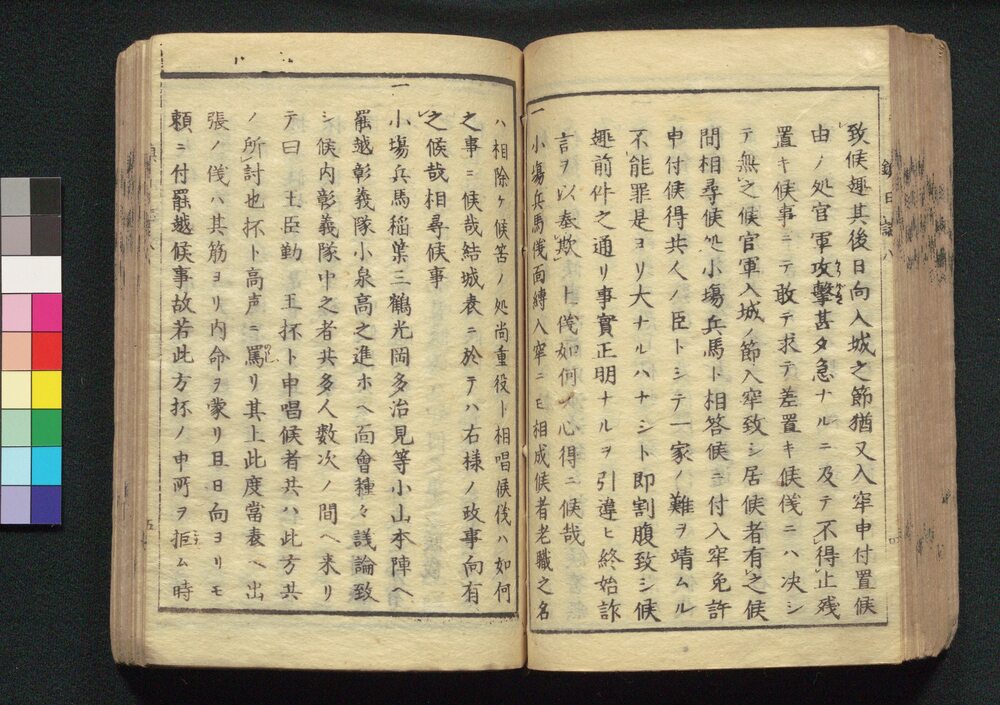 致候趣其後日向入城之節猶又入牢申付置候
由ノ処官軍攻撃甚タ急ナルニ及テ不得止残
置キ候事ニテ敢テ求テ差置キ候儀ニハ决シ
テ無之候官軍入城ノ節入窂致シ居候者有之候
間相尋候処小塲兵馬ト相答候ニ付入牢免許
申付候得共人ノ臣トシテ一家ノ難ヲ靖ムル
不能罪是ヨリ大ナルハナシト即割腹致シ候
趣前件之通リ事實正明ナルヲ引違ヒ終始詐
言ヲ以奉欺候儀如何ノ心得ニ候哉
一小塲兵馬儀面縛入窂ニモ相成候者老職之名
ハ相除ケ候筈ノ処尚重役ト相唱候儀ハ如何
之事ニ候哉結城表ニ於テハ右様ノ政事向有
之候哉相尋候事
一小塲兵馬稲葉三鶴光岡多治見等小山本陣ヘ
罷越彰義隊小泉高之進ホヘ面會種々議論致
シ候内彰義隊中之者共多人数次ノ間ヘ来リ
テ曰
勤
王抔ト申唱候者共ハ此方共
ノ所討也抔ト高声ニ罵リ其上此度當表ヘ出
張ノ儀ハ其筋ヨリ内命ヲ蒙リ且日向ヨリモ
頼ニ付罷越候事故若此方抔ノ申所ヲ拒ム時